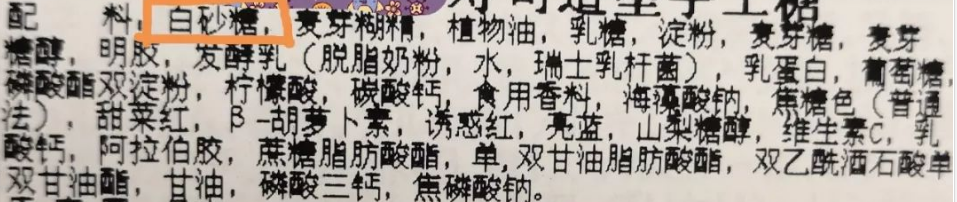 寿司造型学生糖
配 料：白砂糖，麦芽糊精，植物油，乳糖，淀粉，麦芽糖，麦芽
糖醇，明胶，发酵乳（脱脂奶粉，水，瑞士乳杆菌），乳蛋白，葡萄糖，
磷酸酯双淀粉，柠檬酸，碳酸钙，食用香料，海藻酸钠，焦糖色（普通
法），甜菜红，β-胡萝卜素，诱惑红，亮蓝，山梨糖醇，维生素C，乳
酸钙，阿拉伯胶，蔗糖脂肪酸酯，单，双甘油脂肪酸酯，双乙酰酒石酸单
双甘油酯，甘油，磷酸三钙，焦磷酸钠。